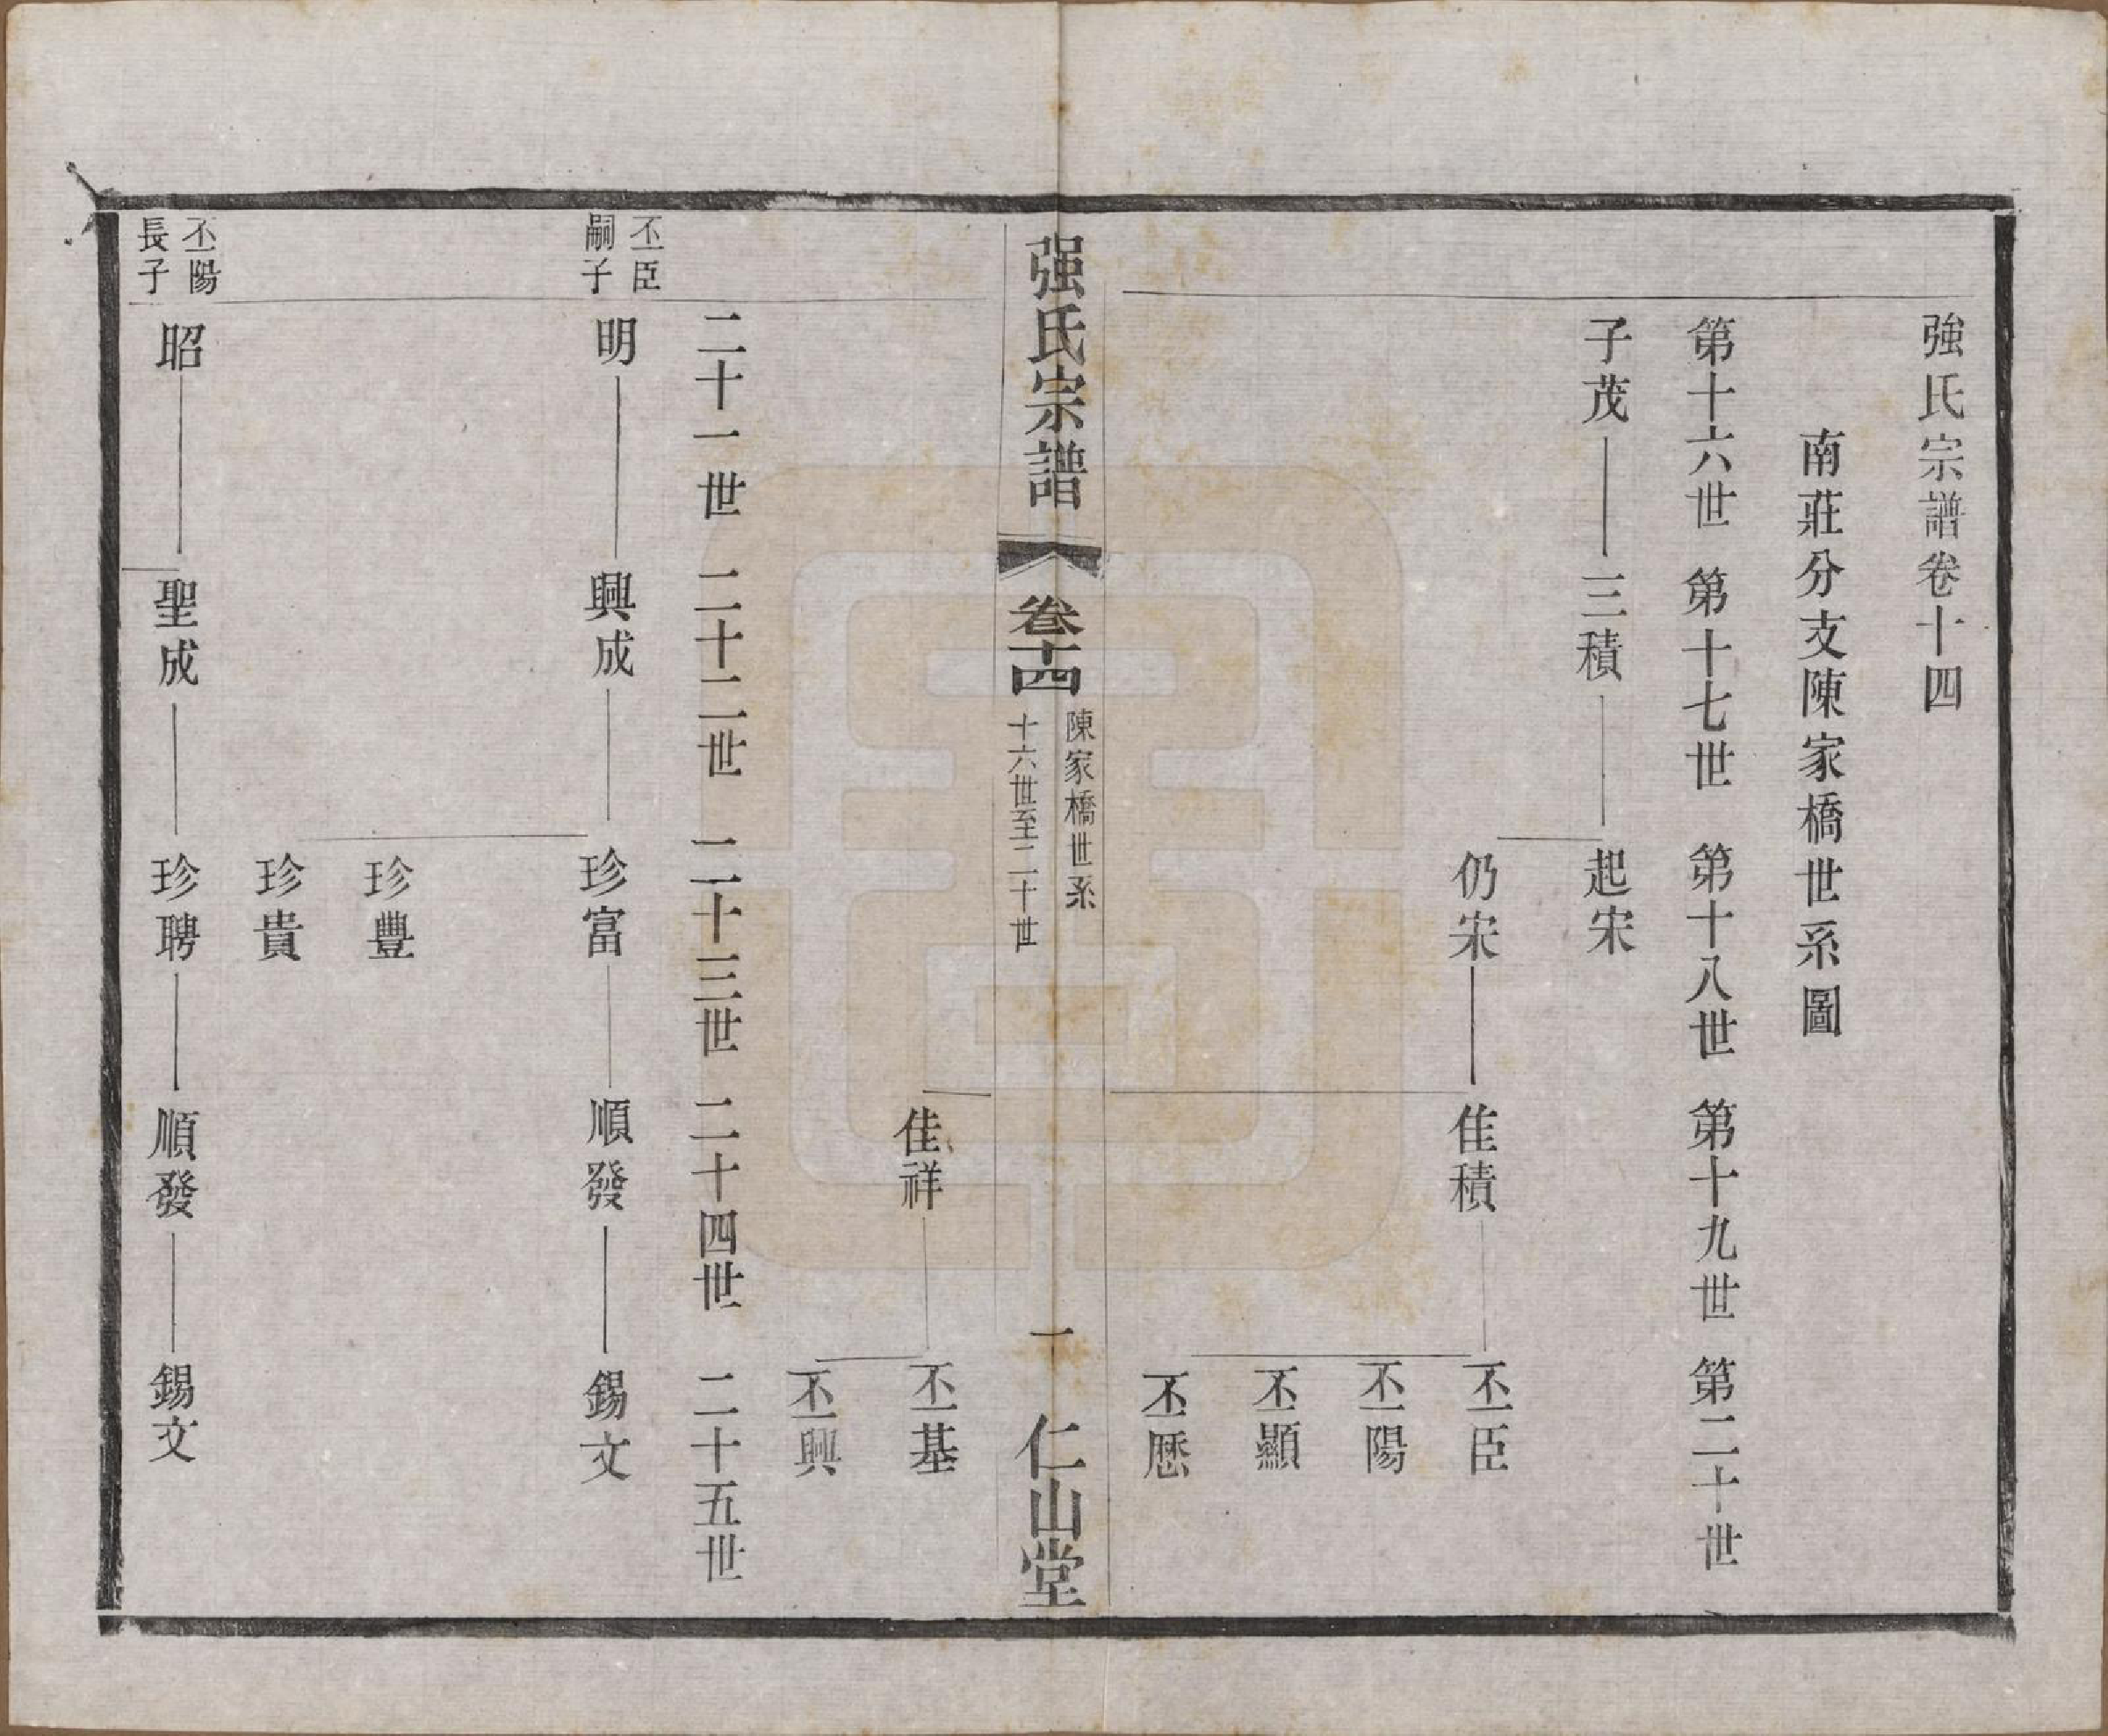 強氏宗譜卷十四
南莊分支陳家橋世系圖
第十六世 第十七世 第十八世 第十九世 第二十世
子茂 三積 起宋
仍宋 佳積 丕臣
丕陽
丕顯
丕歷
强氏宗譜 卷十四 陳家橋世系 十六世至二十世 一 仁山堂
佳祥 丕基
丕興
二十一世 二十二世 二十三世 二十四世 二十五世
丕臣
嗣子
明 興成 珍富 順發 錫文
珍豐
珍貴
丕陽
長子
昭 聖成 珍聘 順發 錫文